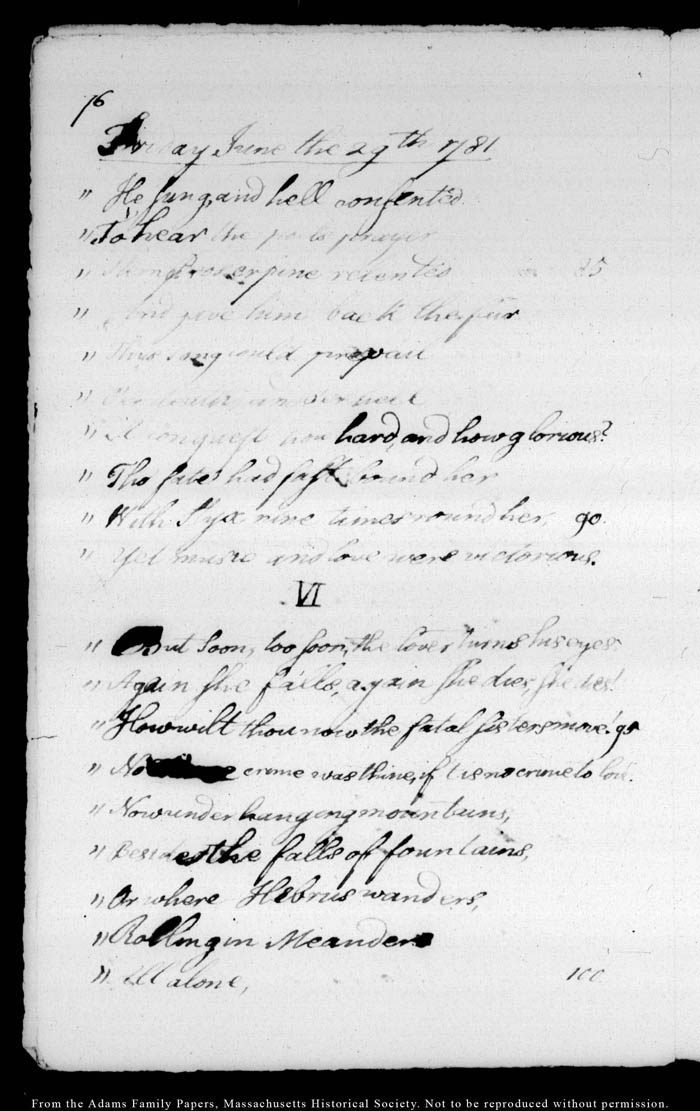 76
Friday June the 29th 1781.
" He sung, and hell consented
" To hear the poets prayer
" Stern Proserpine relented 85
" And gave him back the fair
" Thus song could prevail
" O'er death, and o'er hell
" A conquest how hard, and how glorious?
" Tho' fate had fast bound her
" With Styx nine times round her, 90.
" Yet music and love were victorious.
VI
" But soon, too soon, the lover turns his eyes:
" Again she falls, again she dies, she dies!
" How wilt thou now the fatal sisters move! 95
" No crime was thine, if t'is no crime to love.
" Now under hanging mountains,
" Besides the falls of fountains,
" Or where Hebrus wanders,
" Rolling in Meanders
" All alone, 100
From the Adams Family Papers, Massachusetts Historical Society. Not to be reproduced without permission.